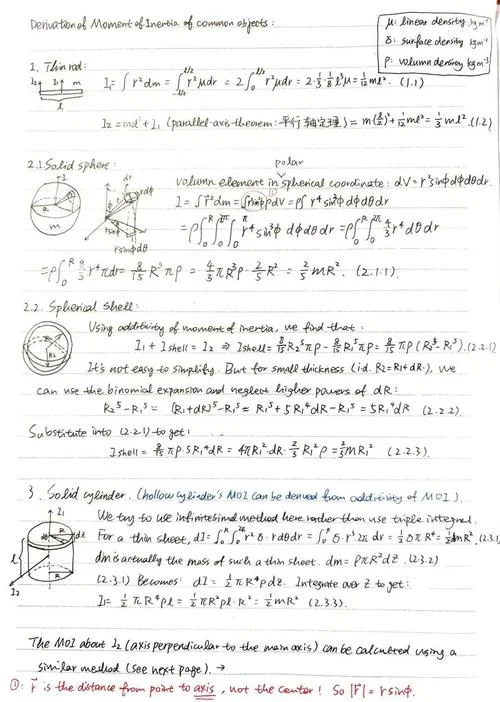 Derivation of Moment of Inertia of common objects:
μ: linear density kgm⁻¹
δ: surface density kgm⁻²
ρ: volumn density kgm⁻³
1. Thin rod:
I₂ I₁ m
l
I₁ = ∫ r²dm = ∫_{-l/2}^{l/2} r²μdr = 2∫_0^{l/2} r²μdr = 2·1/3·1/8 l³μ = 1/12 ml². (1.1)
I₂ = md² + I₁ (parallel-axis-theorem: 平行轴定理) = m(l/2)² + 1/12 ml² = 1/3 ml². (1.2)
2.1. Solid sphere:
polar
volumn element in spherical coordinate: dV = r²sinφdφdθdr.
I = ∫r²dm = ∫r²sin²φρdV = ρ∫r⁴sin³φdφdθdr
= ρ∫_0^R∫_0^{2π}∫_0^π r⁴sin³φ dφdθdr = ρ∫_0^R∫_0^{2π} 4/3 r⁴dθdr
= ρ∫_0^R 8/3 r⁴πdr = 8/15 R⁵πρ = 4/3 πR³ρ·2/5 R² = 2/5 mR². (2.1.1)
2.2. Spherical shell:
Using additivity of moment of inertia, we find that:
I₁ + Ishell = I₂ ⇒ Ishell = 8/15 R₂⁵πρ - 8/15 R₁⁵πρ = 8/15 πρ(R₂⁵-R₁⁵). (2.2.1)
It's not easy to simplify. But for small thickness (i.d. R₂=R₁+dR), we
can use the binomial expansion and neglect higher powers of dR:
R₂⁵-R₁⁵ = (R₁+dR)⁵-R₁⁵ ≈ R₁⁵+5R₁⁴dR-R₁⁵ = 5R₁⁴dR (2.2.2)
Substitute into (2.2.1) to get:
Ishell = 8/15 πρ·5R₁⁴dR = 4πR₁²·dR·2/3 R₁²ρ = 2/3 mR₁² (2.2.3).
3. Solid cylinder. (hollow cylinder's MOI can be derived from additivity of MOI).
We try to use infinitesimal method here rather than use triple integral.
For a thin sheet, dI = ∫_0^R∫_0^{2π} r²δ·rdθdr = ∫_0^R δ·r³2π dr = 1/2 δπR⁴ = 1/2 dmR². (2.3.1)
dm is actually the mass of such a thin sheet. dm = ρπR²dz. (2.3.2)
(2.3.1) Becomes: dI = 1/2 πR⁴ρdz. Integrate over z to get:
I₁ = 1/2 πR⁴ρl = 1/2 πR²ρl·R² = 1/2 mR² (2.3.3).
The MOI about I₂ (axis perpendicular to the main axis) can be calculted using a
similar method (see next page). →
①: r⃗ is the distance from point to axis, not the center! So |r⃗| = r sinφ.